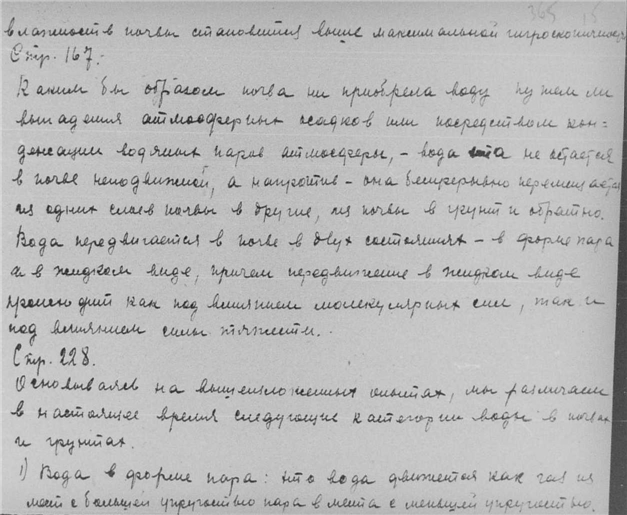 365 15
влажность почвы становится выше максимальной гигроскопичности
Стр. 167.-
Каким бы образом почва ни приобрела воду путем ли
выпадения атмосферных осадков или посредством кон=
денсации водяных паров атмосферы, - вода эта не остается
в почве неподвижной, а напротив - она беспрерывно перемещается
из одних слоев почвы в другие, из почвы в грунт и обратно.
Вода передвигается в почве в двух состояниях - в форме пара
и в жидком виде, причем передвижение в жидком виде
происходит как под влиянием молекулярных сил, так и
под влиянием силы тяжести.
Стр. 228.
Основываясь на вышеизложенных опытах, мы различаем
в настоящее время следующие категории воды в почвах
и грунтах.
1) Вода в форме пара: эта вода движется как газ из
мест с большей упругостью пара в места с меньшей упругостью.